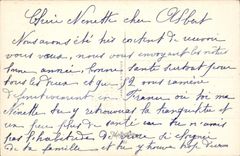 Chère Nenette cher Albert
Nous avons été très content de recevoir
vous vœux, nous vous envoyant les notres
bonne année, bonne santé surtout pour
tous les deux et que 52 vous ramène
définitivement en France où toi ma
Nenette tu y retrouveras la tranquilité et
un peu plus de santé car tu n'auras
pas l'habitude de vivre
de ta famille et tu y